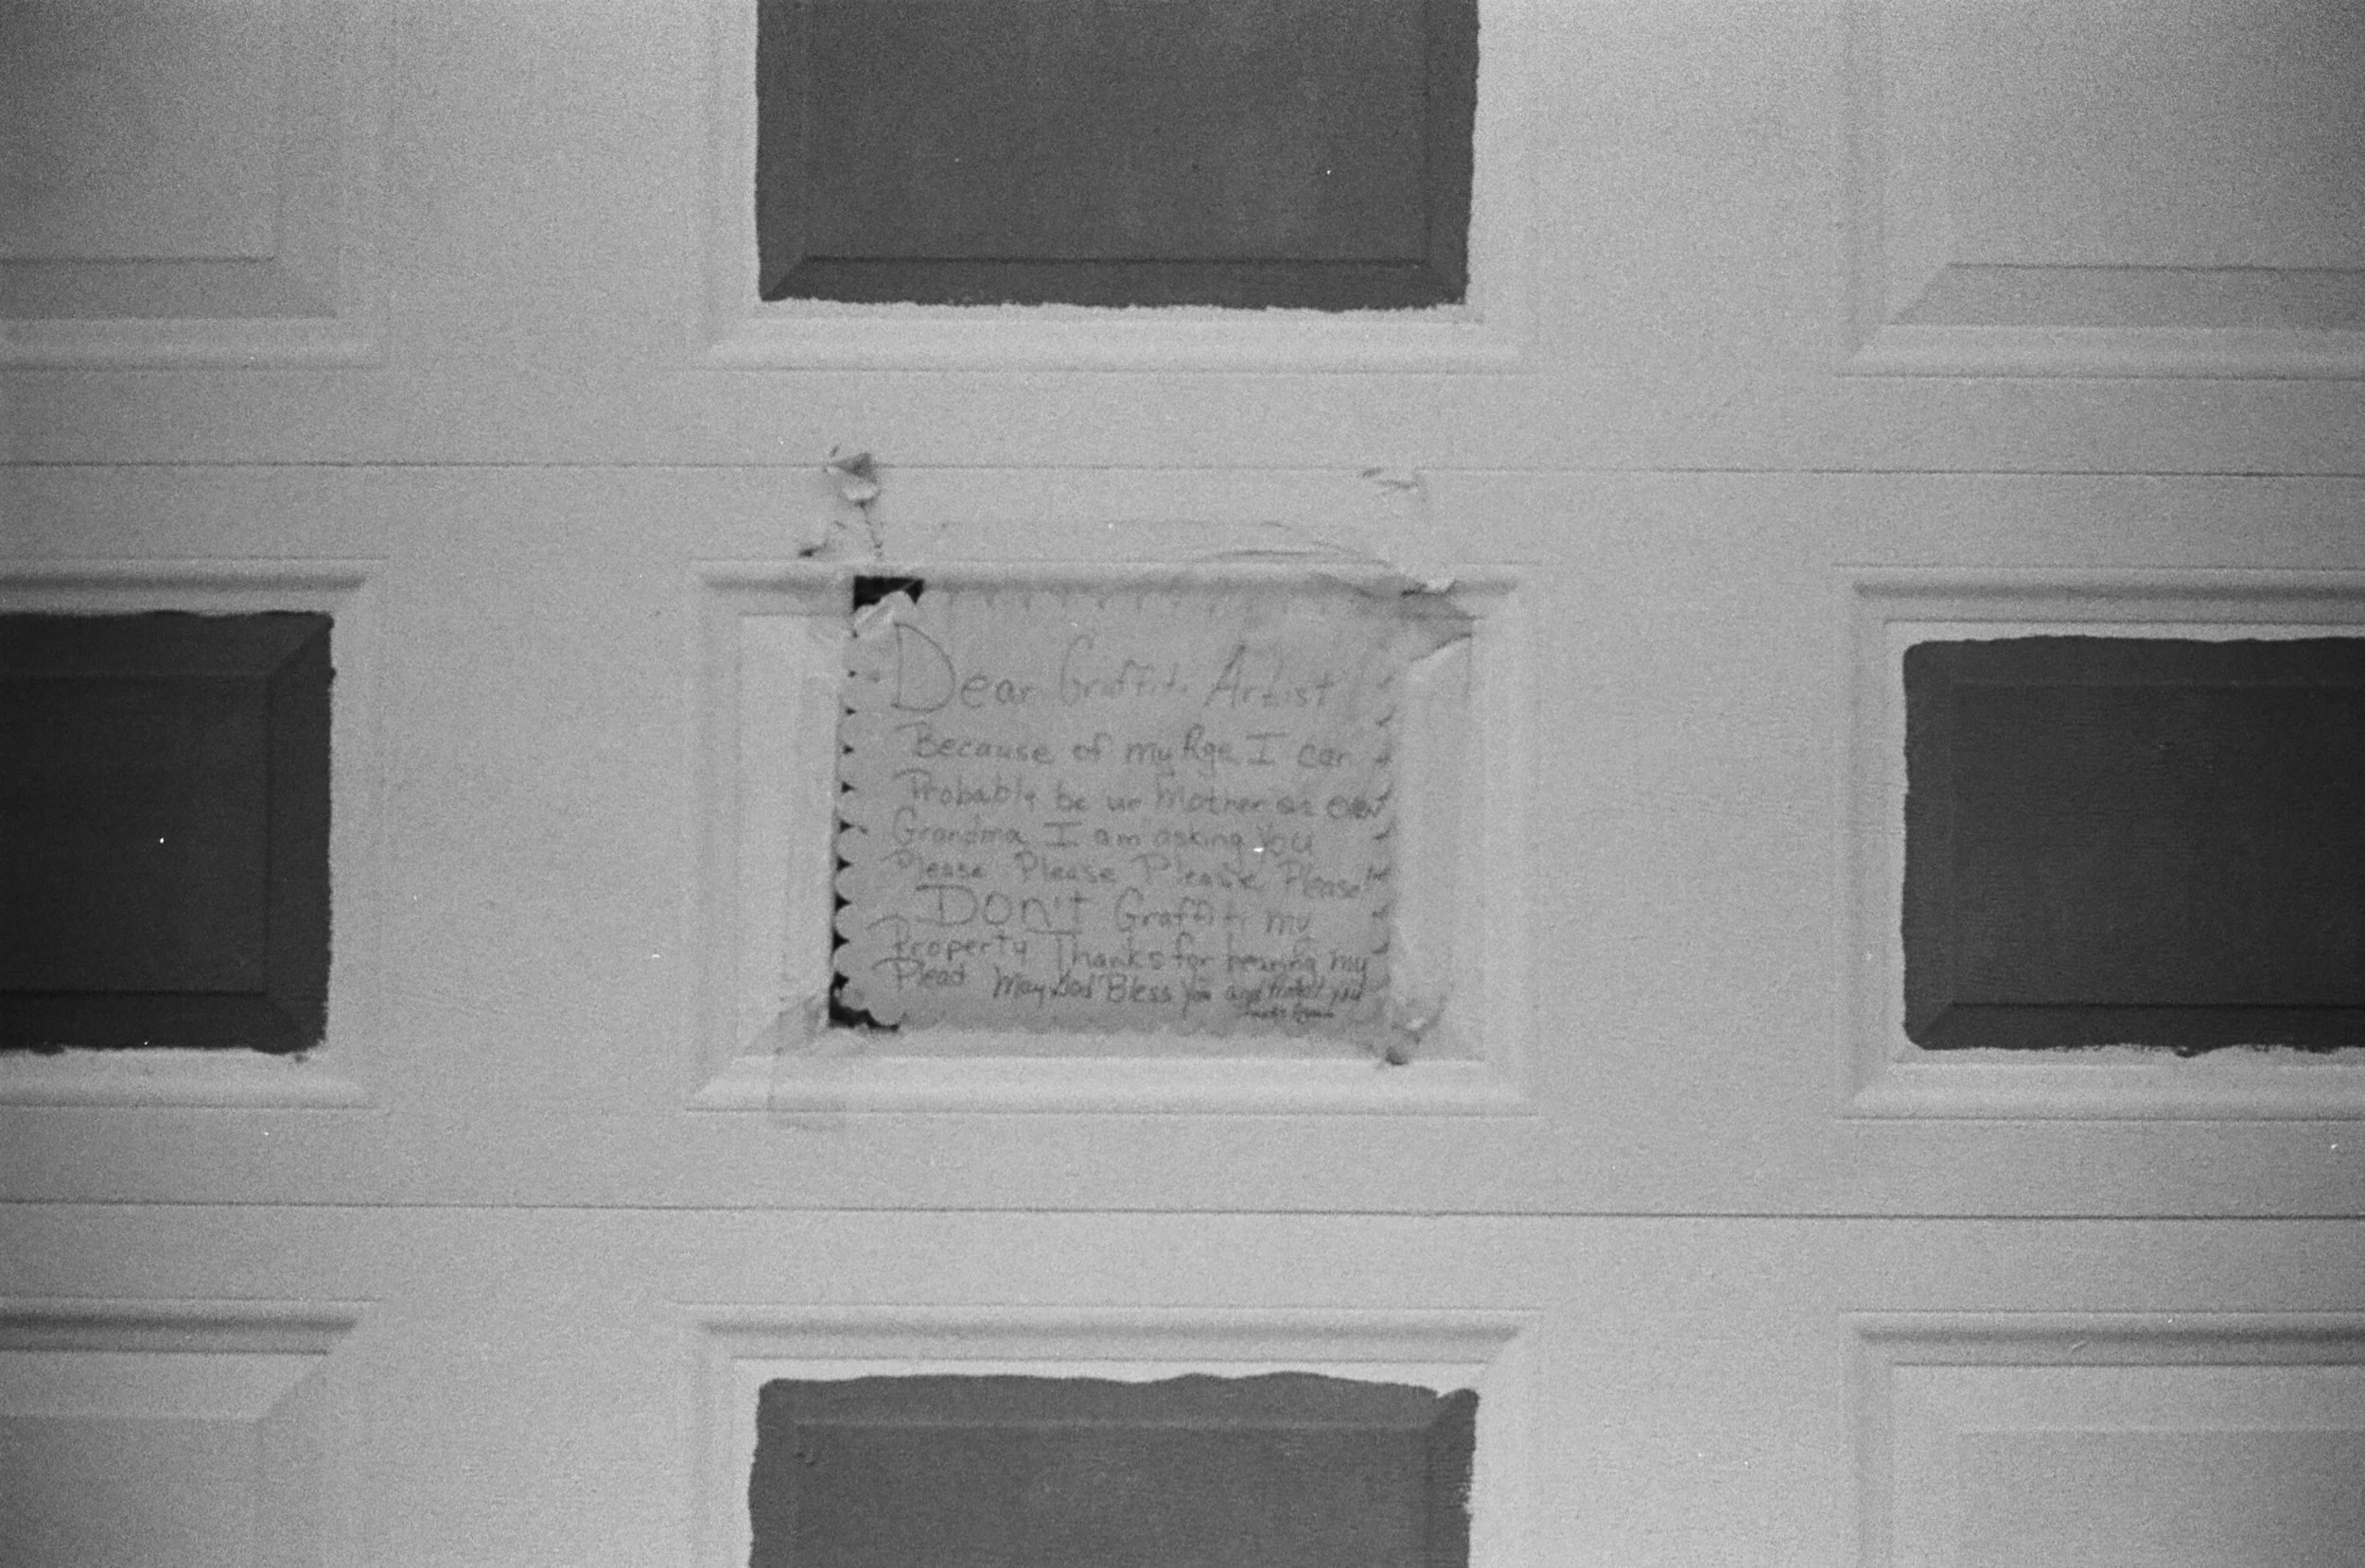 Dear Graffiti Artist
Because of my Age I can
Probably be ur Mother or even
Grandma I am asking you
Please Please Please Please
DON'T Graffiti my
Property Thanks for hearing my
Plead May God Bless you and you